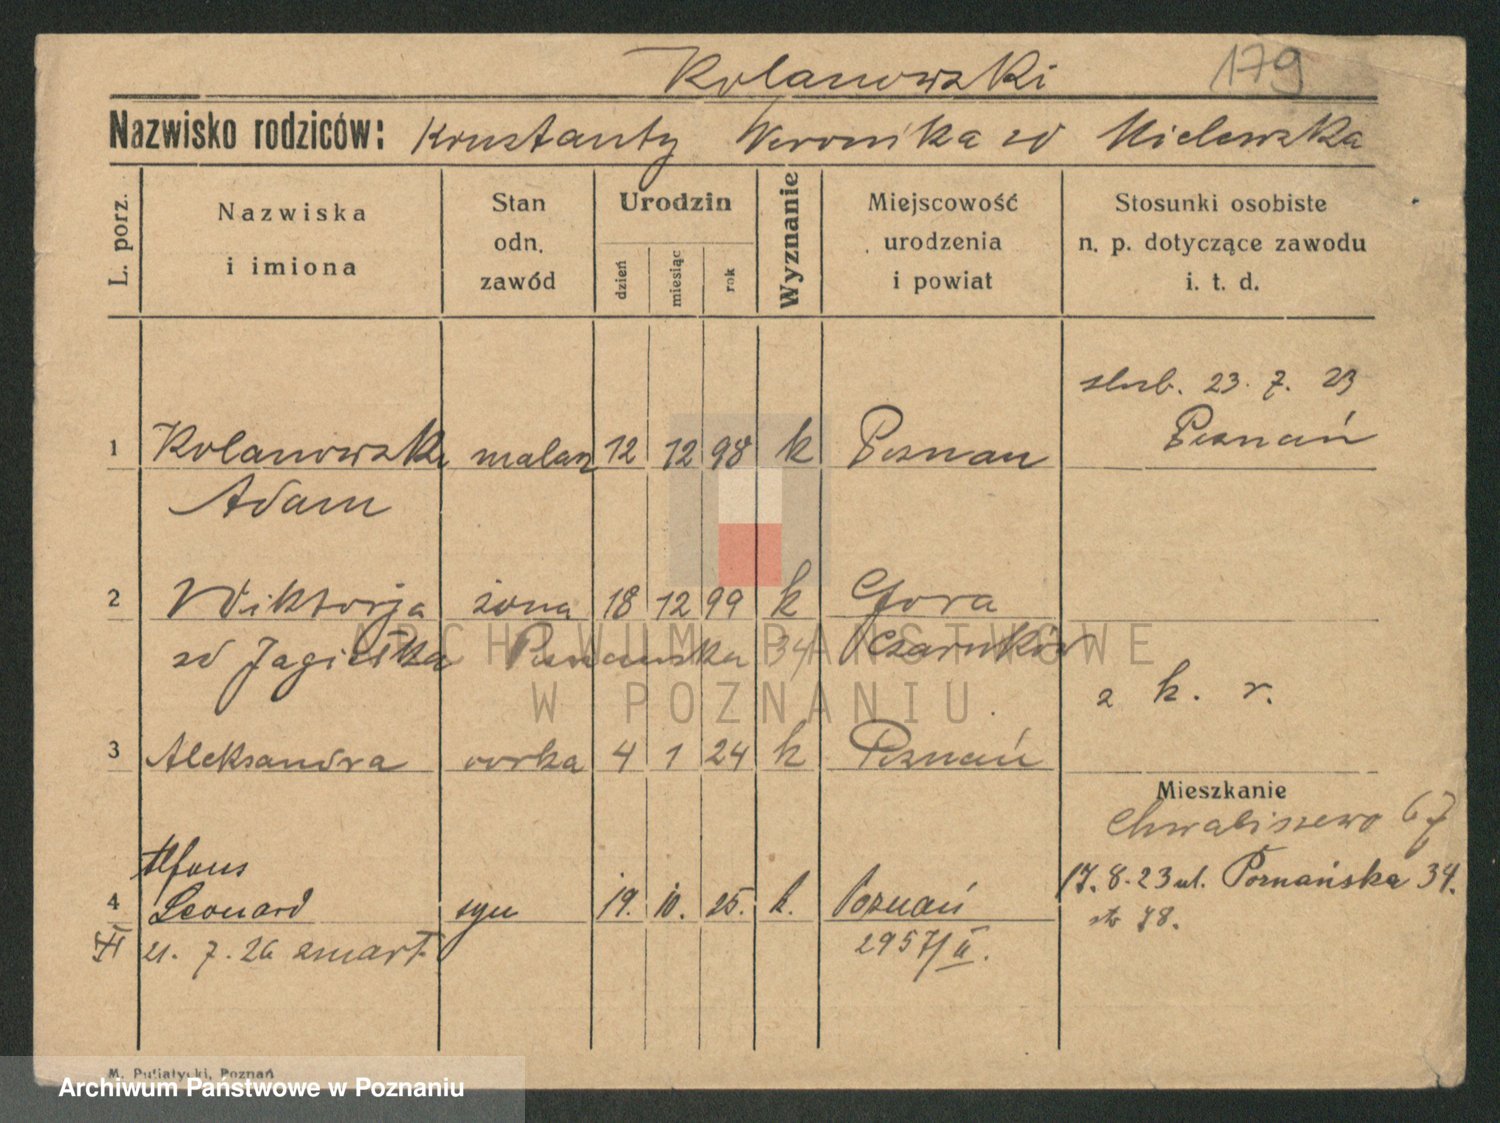 Kolanowski 179
Nazwisko rodziców: Konstanty Weronika zd Mielewska
L. porz. Nazwiska i imiona Stan odn. zawód Urodzin dzień miesiąc rok Wyznanie Miejscowość urodzenia i powiat Stosunki osobiste n. p. dotyczące zawodu i. t. d.
slub. 23. 7. 23
Poznań
1 Kolanowski malarz 12 12 98 k Poznan
Adam
2 Wiktorja żona 18 12 99 k Gora
zd Jagiełka Poznańska 34 Czarnków
z k. r.
3 Aleksandra corka 4 1 24 k Poznań
Mieszkanie
Chwaliszewo 67
Alfons
17. 8. 23 ul. Poznańska 34.
4 Leonard syn 19. 10. 25. k. Poznań
str 78.
21. 7. 26 zmarł 2957/II.
ARCHIWUM PAŃSTWOWE
W POZNANIU
M. Putiatycki, Poznań
Archiwum Państwowe w Poznaniu